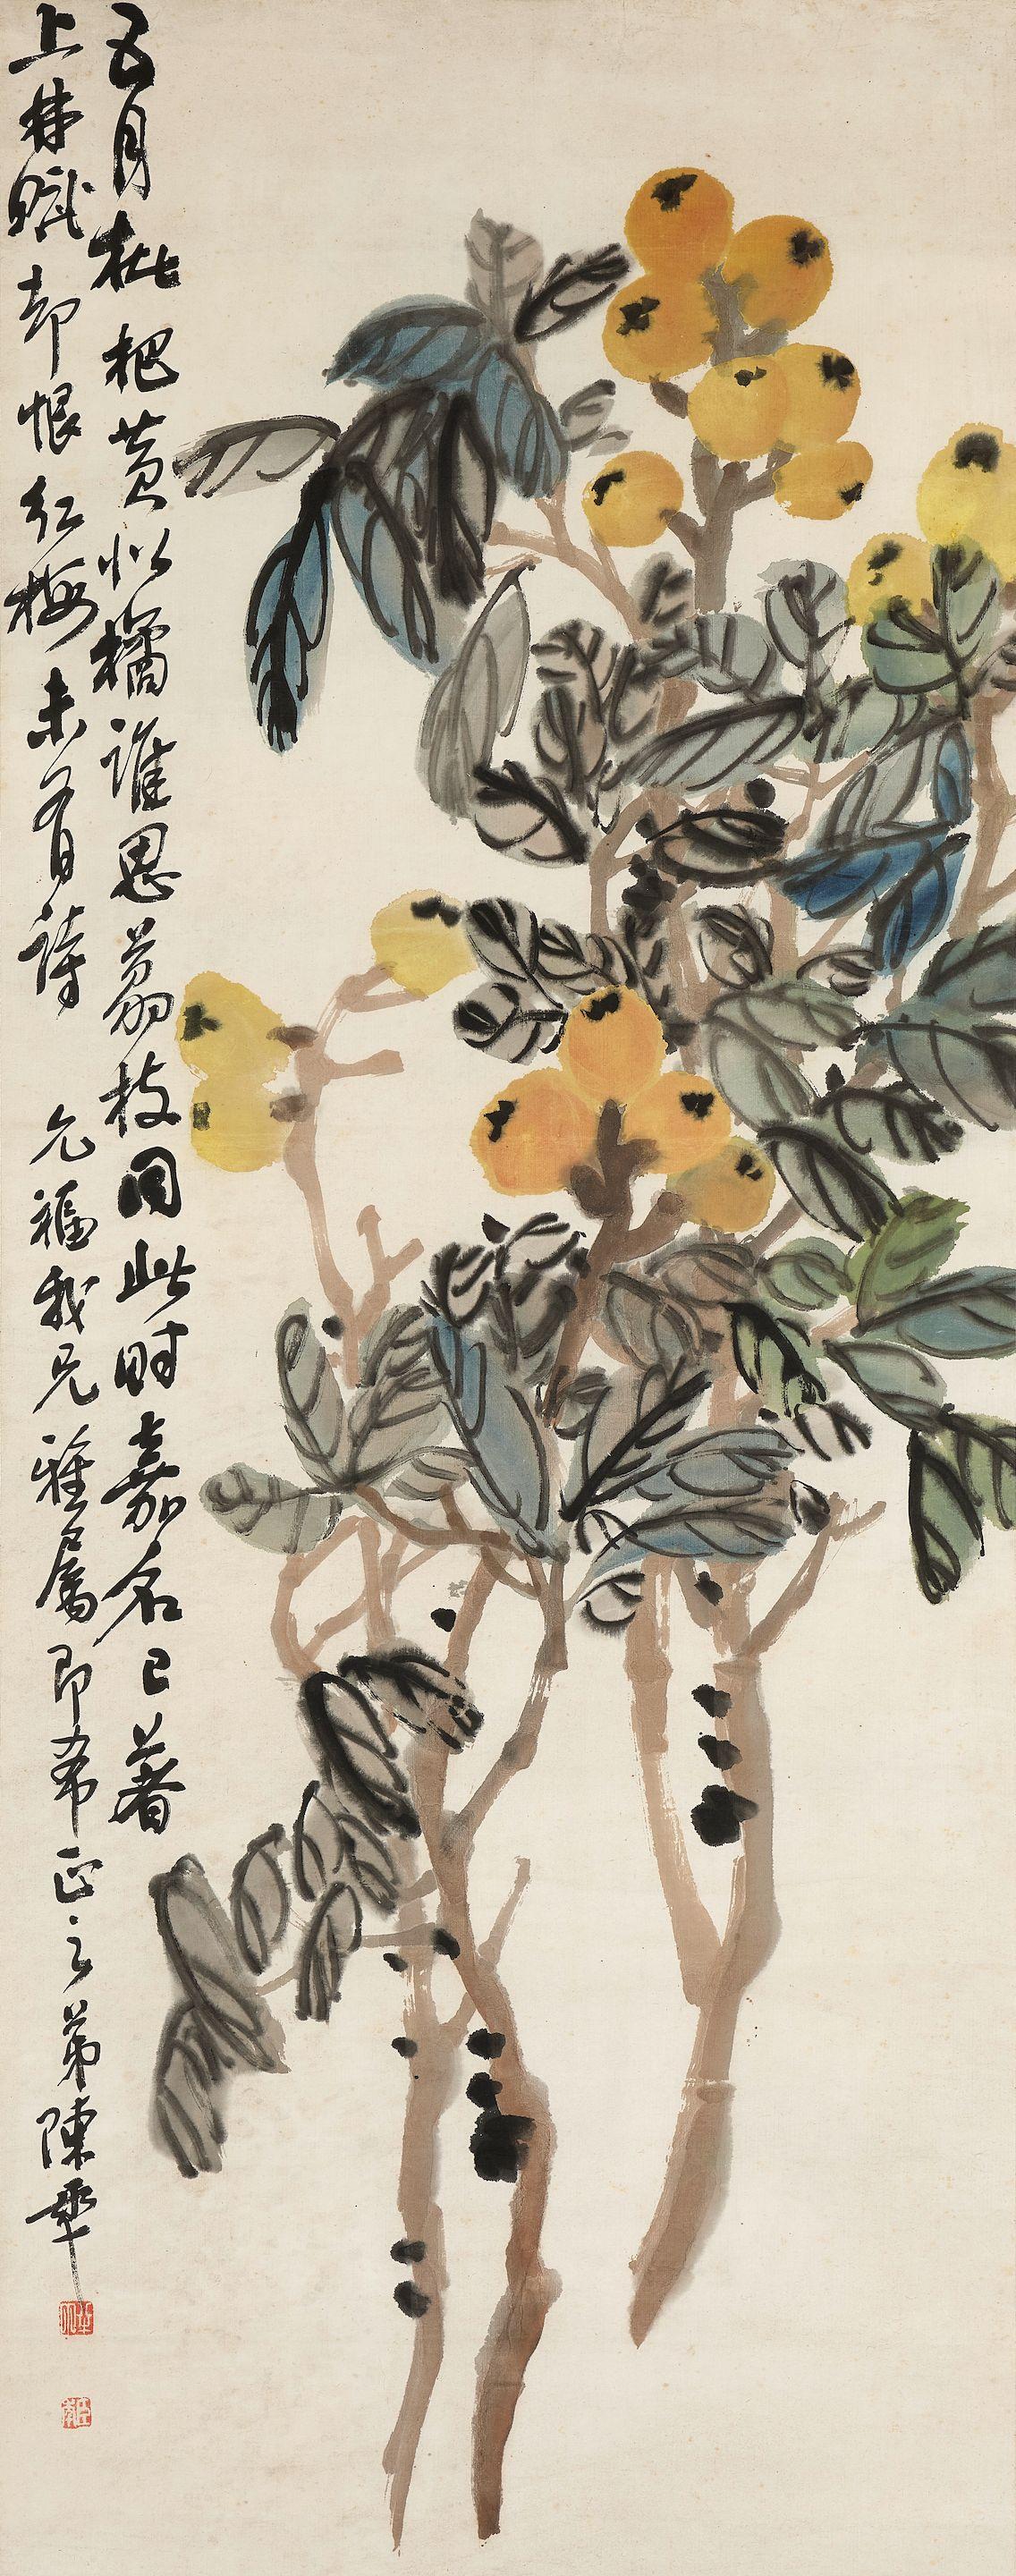 五月枇杷黄似橘谁思荔枝同此时嘉名已著
上林賦却恨红梅未有诗 允福我兄雅属即希正之弟陳半